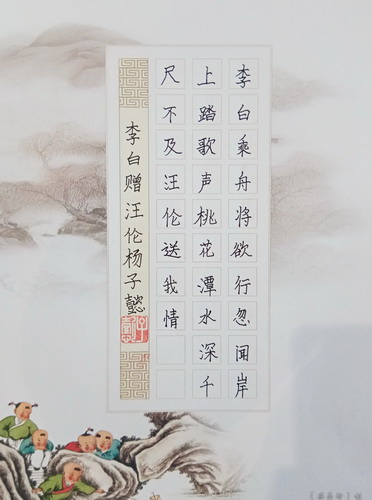 李白乘舟将欲行忽闻岸
上踏歌声桃花潭水深千
尺不及汪伦送我情
李白赠汪伦杨子懿